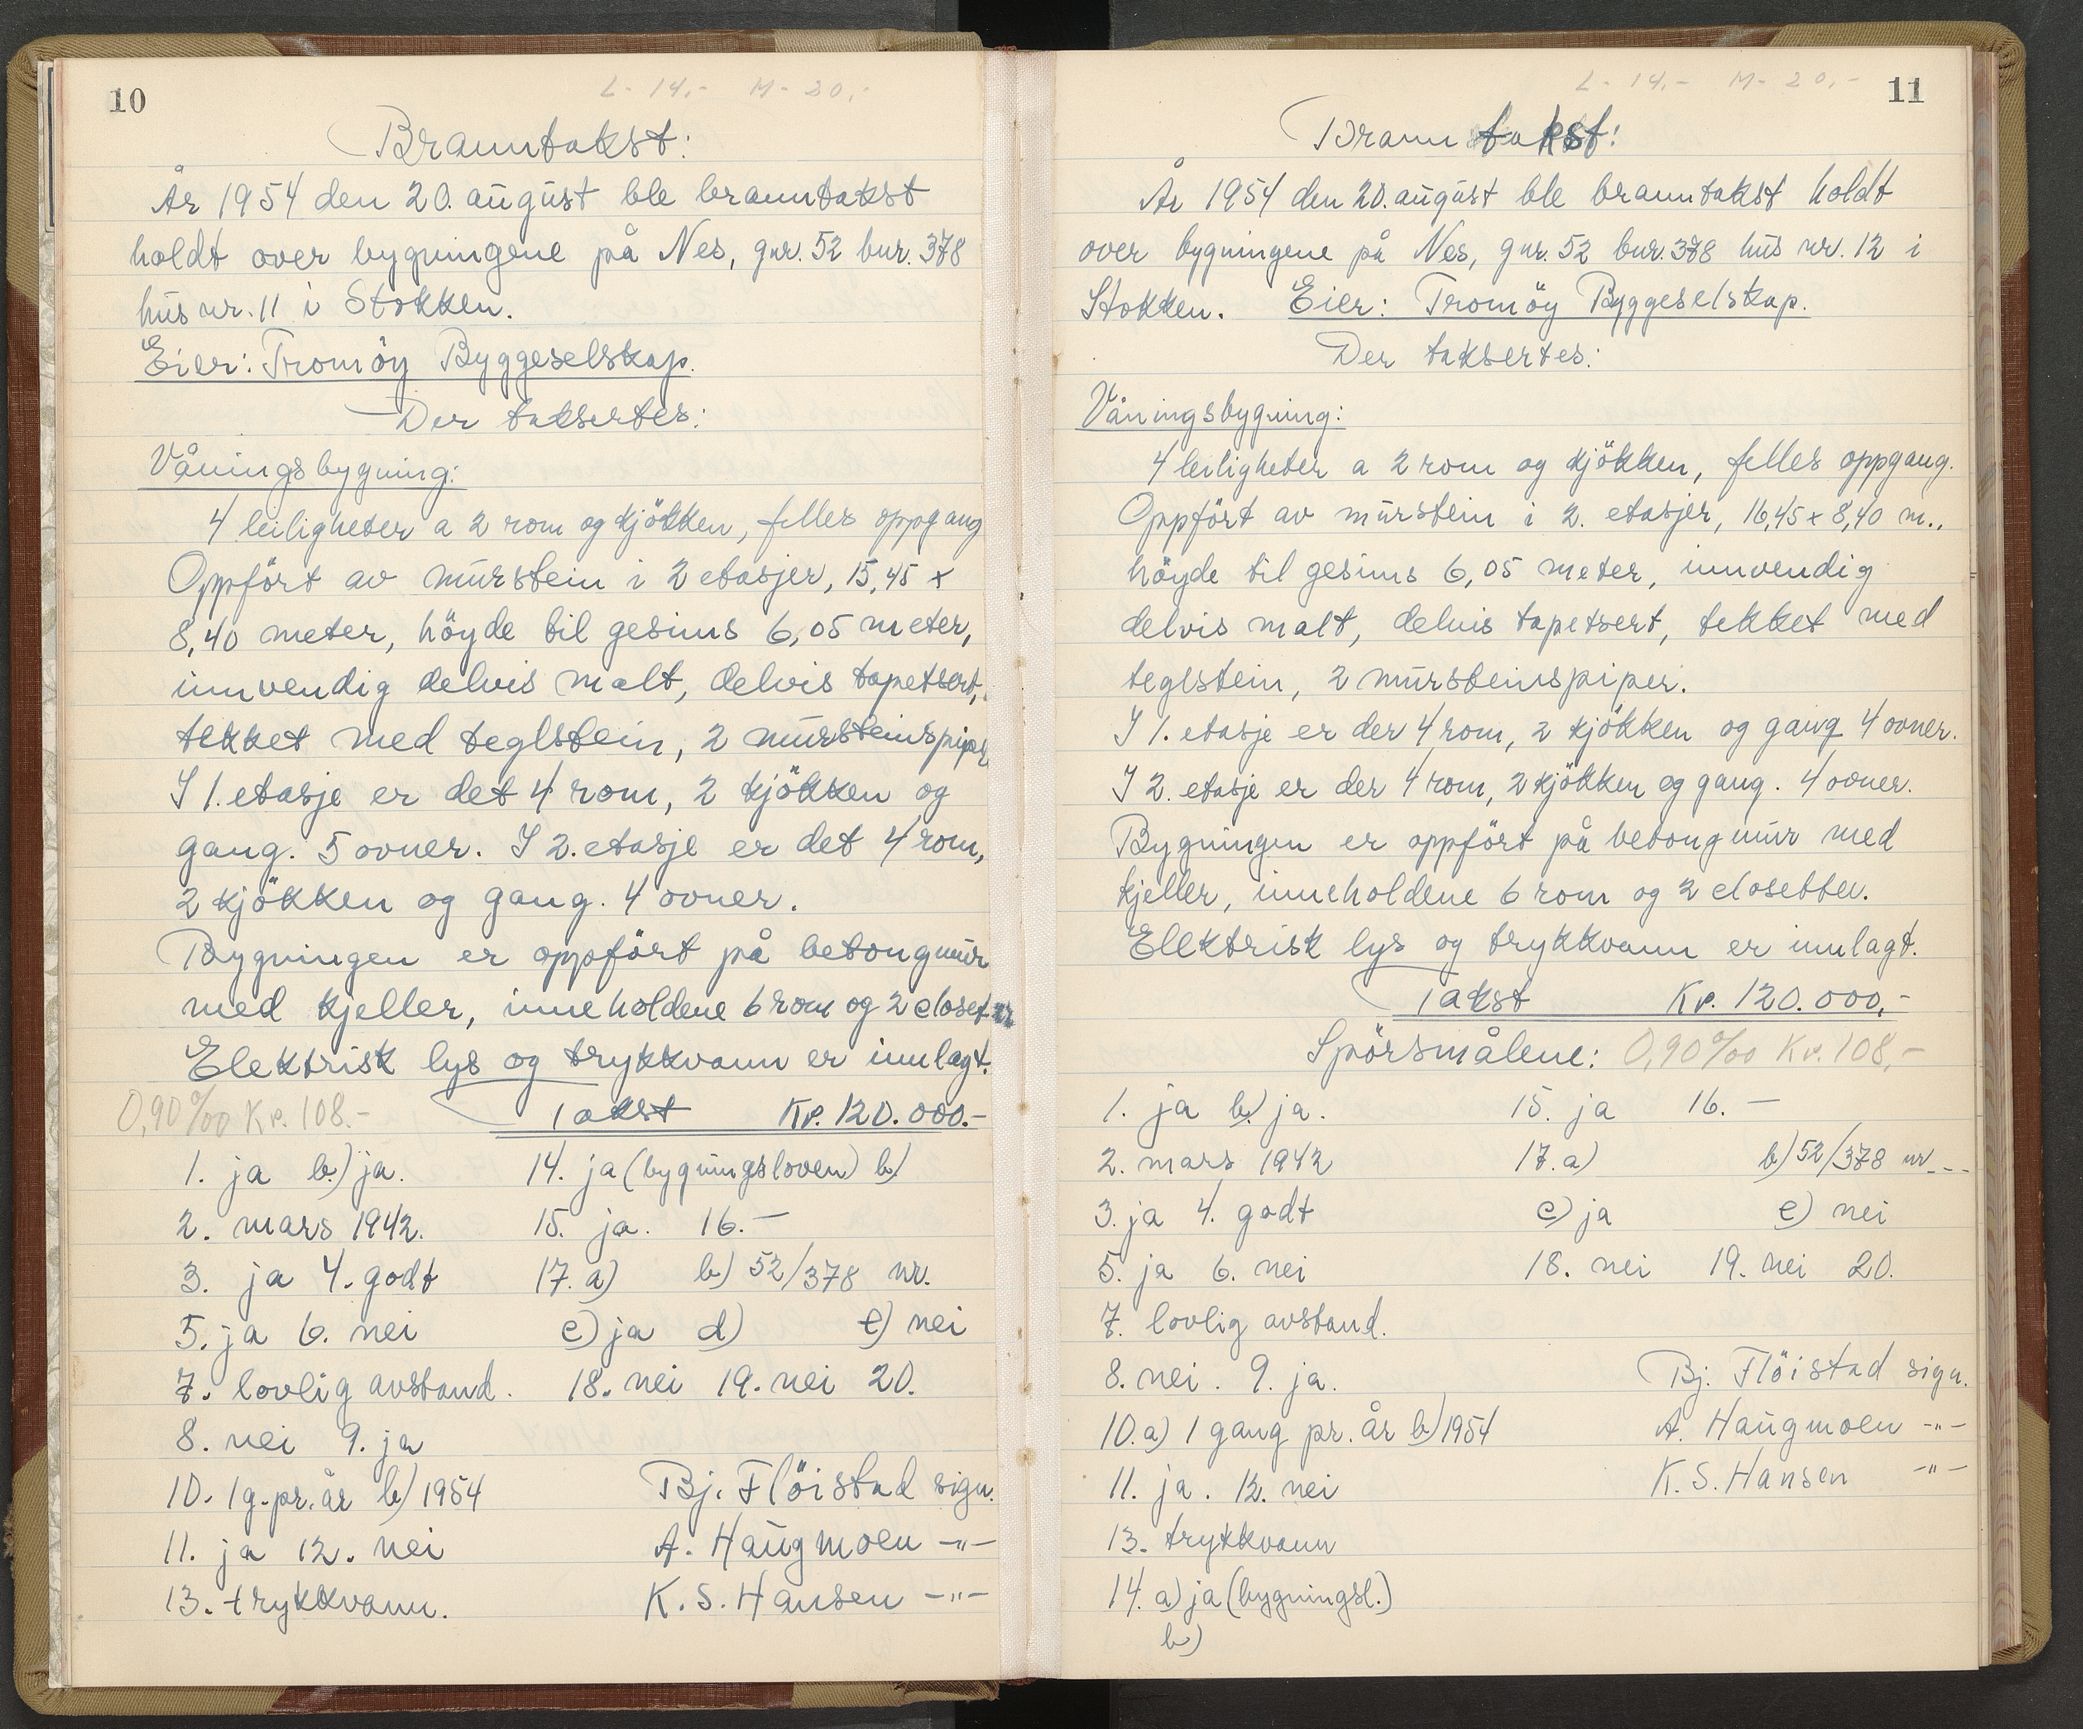 10
L - 14,- M - 20,-
Branntakst:
År 1954 den 20. august ble branntakst
holdt over bygningene på Nes, gnr. 52 bnr. 378
hus nr. 11 i Stokken.
Eier: Tromöy Byggeselskap.
Der taksertes:
Våningsbygning:
4 leiligheter a 2 rom og kjökken, felles oppgang
Oppfört av murstein i 2 etasjer, 15,45 x
8,40 meter, höyde til gesims 6,05 meter,
innvendig delvis malt, delvis tapetsert,
tekket med teglstein, 2 mursteinspiper
I 1. etasje er det 4 rom, 2 kjökken og
gang. 5 ovner. I 2. etasje er det 4 rom,
2 kjökken og gang. 4 ovner.
Bygningen er oppfört på betongmur
med kjeller, inneholdene 6 rom og 2 closetter
Elektrisk lys og trykkvann er innlagt.
0,90 ‰ Kr. 108.- Takst Kr. 120.000.-
1. ja b.) ja. 14. ja (bygningsloven) b)
2. mars 1942. 15. ja. 16. -
3. ja 4. godt 17. a) b) 52/378 nr.
5. ja 6. nei c) ja d) e) nei
7. lovlig avstand. 18. nei 19. nei 20.
8. nei 9. ja
10. 1 g. pr. år b) 1954 Bj. Flöistad sign.
11. ja 12. nei A. Haugmoen -"-
13. trykkvann. K. S. Hansen -"-
11
L - 14,- M - 20,-
Branntakst:
År 1954 den 20. august ble branntakst holdt
over bygningene på Nes, gnr. 52 bnr. 378 hus nr. 12 i
Stokken. Eier: Tromöy Byggeselskap.
Der taksertes:
Våningsbygning:
4 leiligheter a 2 rom og kjökken, felles oppgang.
Oppfört av murstein i 2. etasjer, 16,45 x 8,40 m.,
höyde til gesims 6,05 meter, innvendig
delvis malt, delvis tapetsert, tekket med
teglstein, 2 mursteinspiper.
I 1. etasje er der 4 rom, 2 kjökken og gang 4 ovner.
I 2. etasje er der 4 rom, 2 kjökken og gang. 4 ovner.
Bygningen er oppfört på betongmur med
kjeller, inneholdene 6 rom og 2 closetter.
Elektrisk lys og trykkvann er innlagt.
Takst Kr. 120.000,-
Spörsmålene: 0,90 ‰ Kr. 108,-
1. ja b.) ja. 15. ja 16. -
2. mars 1942 17. a) b) 52/378 nr. ---
3. ja 4. godt c) ja e) nei
5. ja 6. nei 18. nei 19. nei 20.
7. lovlig avstand.
8. nei. 9. ja. Bj. Flöistad sign.
10. a) 1 gang pr. år b) 1954 A. Haugmoen -"-
11. ja. 12. nei K. S. Hansen -"-
13. trykkvann
14. a) ja (bygningsl.)
b)